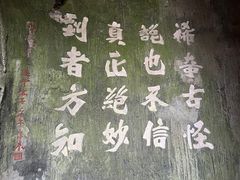 稀奇古怪
說也不信
真正絕妙
到者方知